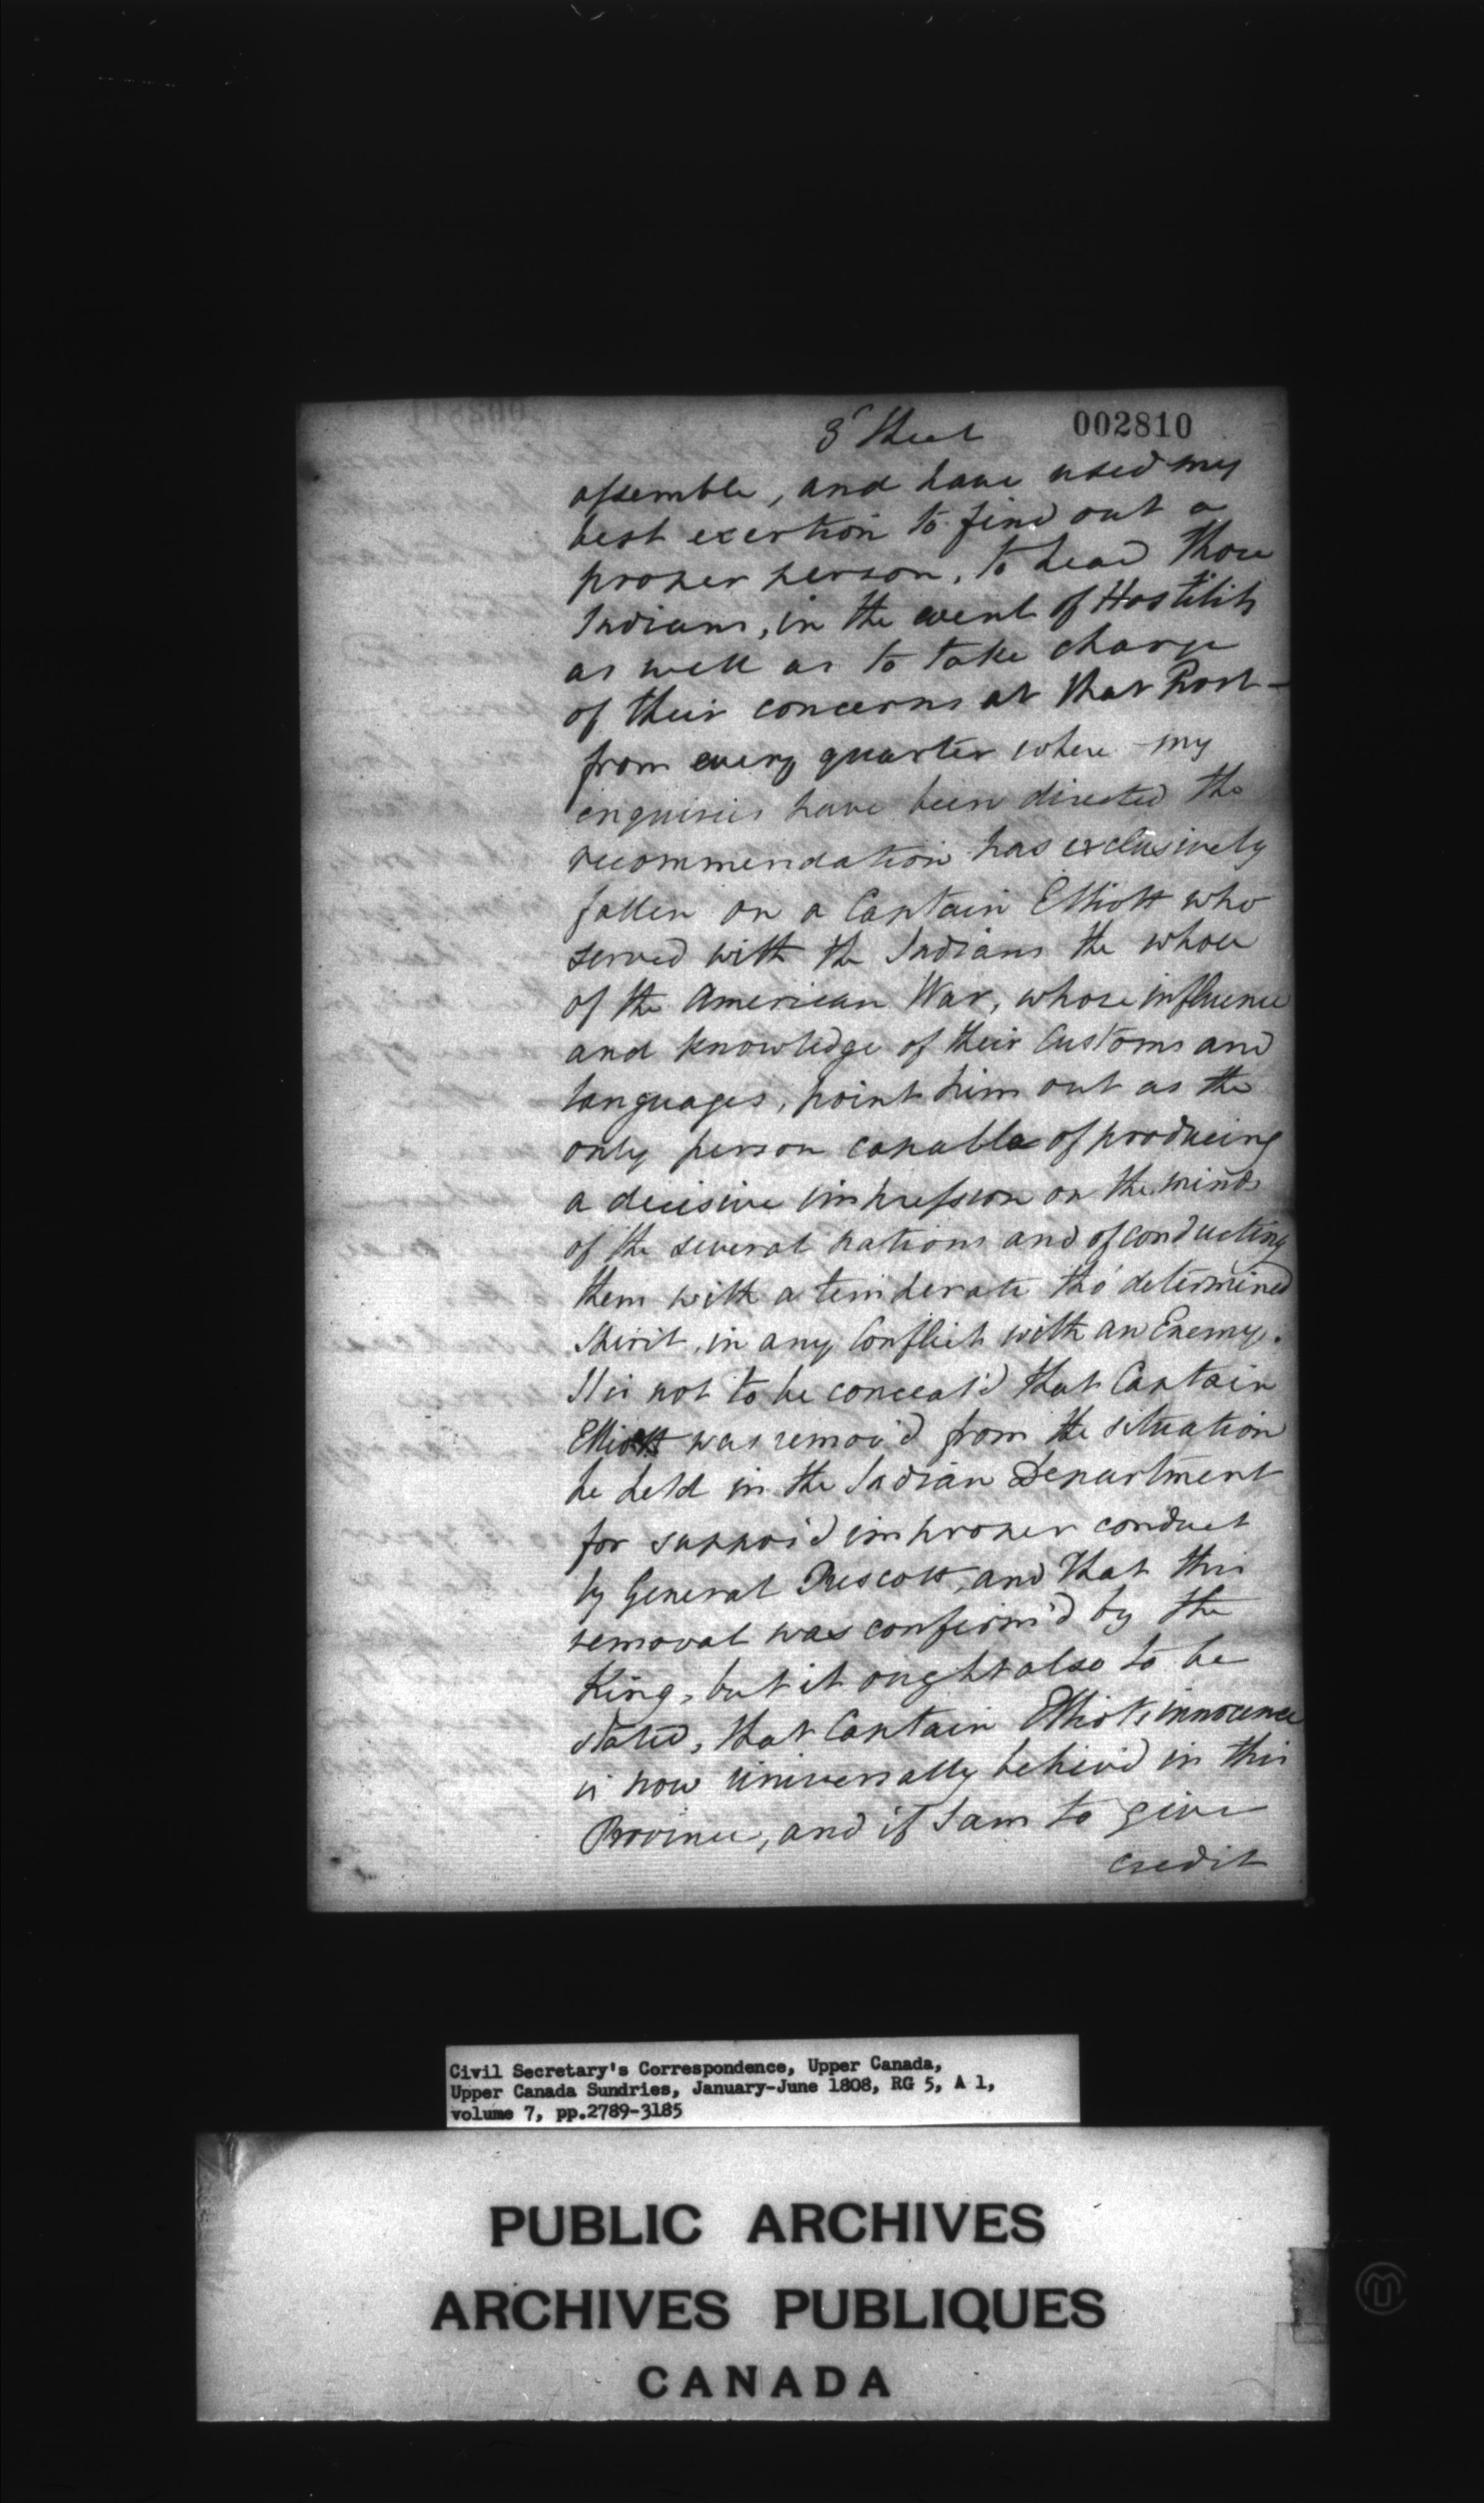 3d Sheet
002810
assemble, and have used my
best exertion to find out a
proper person, to head those
Indians, in the event of Hostility
as well as to take charge
of their concerns at that Post -
from every quarter where my
enquiries have been directed the
recommendation has exclusively
fallen on a Captain Elliott who
served with the Indians the whole
of the American War, whose influence
and knowledge of their Customs and
languages, point him out as the
only person capable of producing
a decisive impression on the minds
of the several nations and of conducting
them with a temperate tho' determined
Spirit, in any Conflict with an Enemy.
It is not to be conceal'd that Captain
Elliott was remov'd from the situation
he held in the Indian Department
for suppos'd improper conduct
by General Prescott, and that this
removal was confirm'd by the
King, but it ought also to be
stated, that Captain Elliot's innocence
is now universally believ'd in this
Province, and if I am to give
credit
Civil Secretary's Correspondence, Upper Canada,
Upper Canada Sundries, January-June 1808, RG 5, A 1,
volume 7, pp.2789-3185
PUBLIC ARCHIVES
ARCHIVES PUBLIQUES
CANADA